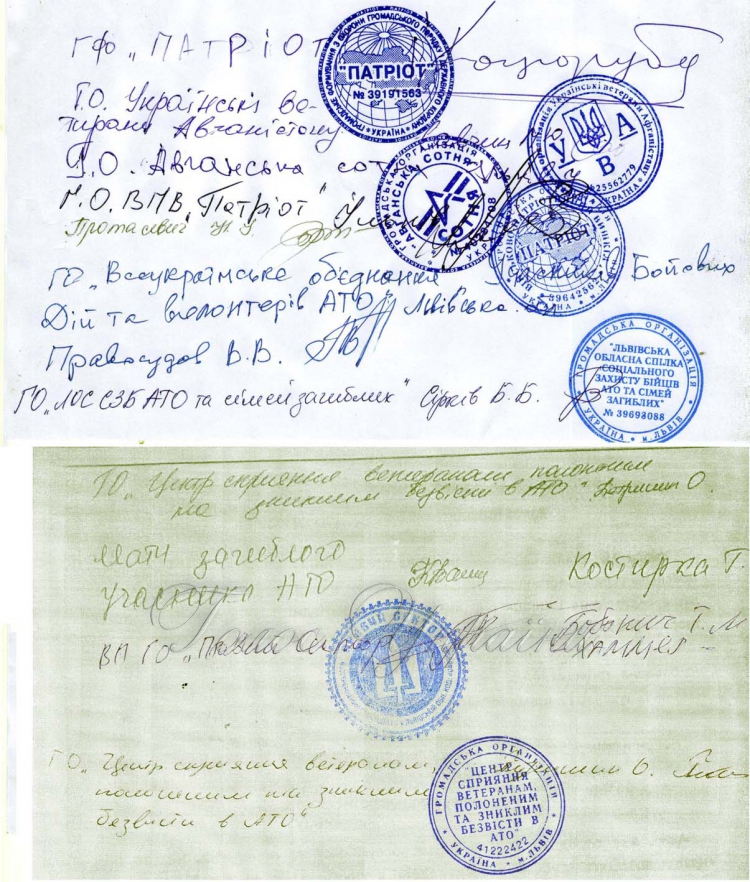 ГФО "ПАТРІОТ
Коцоруба
ГРОМАДСЬКЕ ФОРМУВАННЯ З ОХОРОНИ ГРОМАДСЬКОГО ПОРЯДКУ І ДЕРЖАВНОГО КОРДОНУ
"ПАТРІОТ"
№ 39191563
УКРАЇНА
Г.О. Українські ве-
терани Авганістону
українські ветерани Афганістану
У А В
25562729
Г.О. Авганська сот
ГРОМАДСЬКА ОРГАНІЗАЦІЯ
АФГАНСЬКА СОТНЯ
СОТНЯ
Г.О. ВМВ "Патріот"
ПАТРІОТ
УКРАЇНА м.ЛЬВІВ
Протасевич
ГО "Всеукраїнське обєднання Учасників Бойових
Дій та волонтерів АТО" Львівська
Правосудов В.В.
ГО "ЛОС СЗБ АТО та сімей загиблих" Сірків Б.Б.
ГРОМАДСЬКА ОРГАНІЗАЦІЯ
"ЛЬВІВСЬКА
ОБЛАСНА СПІЛКА
СОЦІАЛЬНОГО
ЗАХИСТУ БІЙЦІВ
АТО ТА СІМЕЙ
ЗАГИБЛИХ"
№ 39698088
УКРАЇНА м.ЛЬВІВ
ГО "Центр сприяння ветеранам полоненим
та зниклим безвісти в АТО" О.
Мати загиблого
учасника АТО
Костирка Т.
ВП ГО "Правий Сектор"
Бобанич Т. М
ХАММЕР
ПРАВИЙ СЕКТОР
ГО "Центр сприяння ветеранам, О.
полоненим та зниклим
безвісти в АТО"
ГРОМАДСЬКА ОРГАНІЗАЦІЯ
"ЦЕНТР
СПРИЯННЯ
ВЕТЕРАНАМ,
ПОЛОНЕНИМ
ТА ЗНИКЛИМ
БЕЗВІСТИ В
АТО"
41222422
УКРАЇНА м.ЛЬВІВ